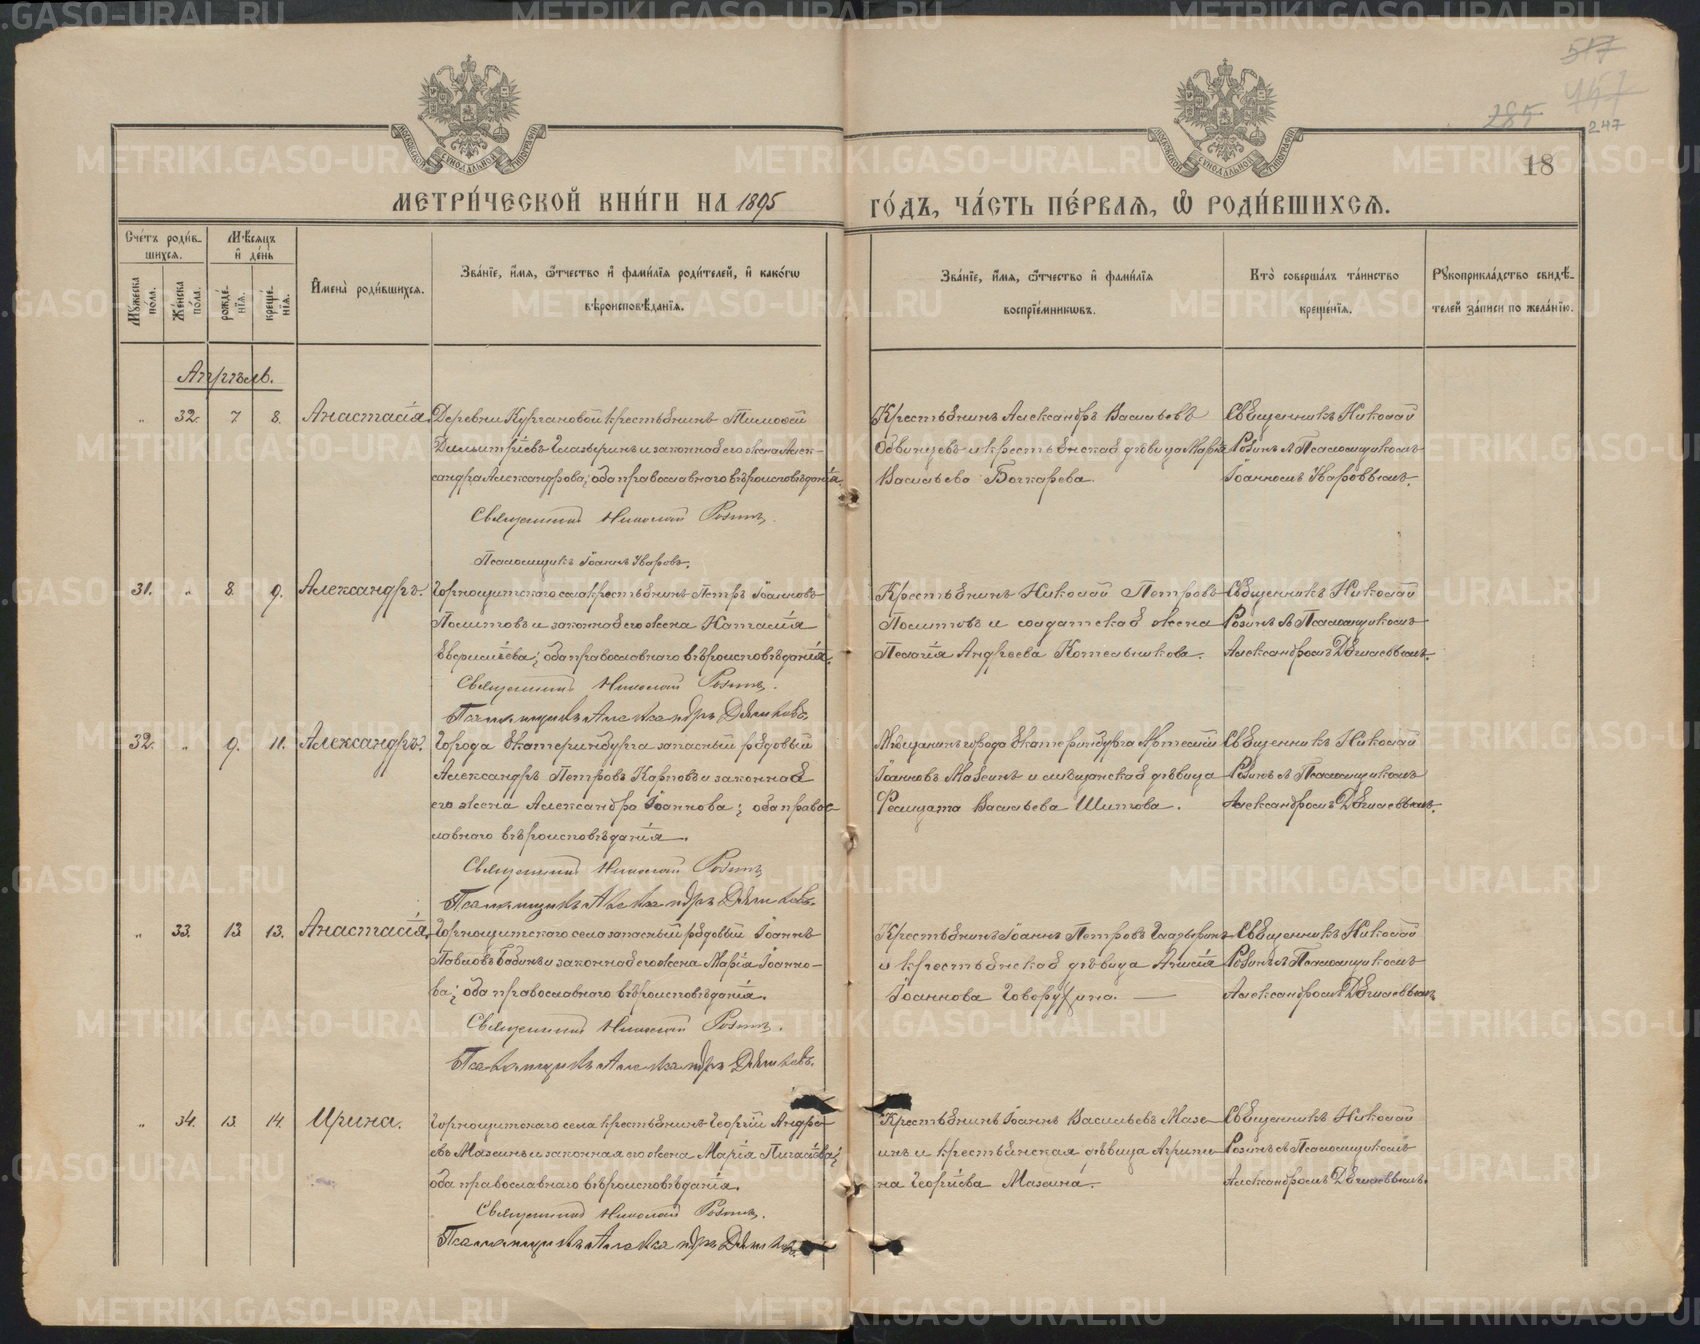 517
957
285
247
18
МОСКОВСКОЙ СУНОДАЛЬНОЙ ТИПОГРАФІИ
МОСКОВСКОЙ СУНОДАЛЬНОЙ ТИПОГРАФІИ
МЕТРИ́ЧЕСКОЙ КНИ́ГИ НА 1895 ГО́ДЪ, ЧА́СТЬ ПЕ́РВАЯ, Ѡ РОДИ́ВШИХСЯ.
Сче́тъ роди́в-
шихся.
Мѣ́сяцъ
и де́нь
Му́жеска по́ла.
Же́нска по́ла.
рожде́нїя.
креще́нїя.
И́мена̀ роди́вшихся.
Зва́нїе, и́мя, ѻ́тчество и фами́лїя роди́телей, и како́гѡ
вѣроисповѣ́данїя.
Зва́нїе, и́мя, ѻ́тчество и фами́лїя
воспрїе́мникѡвъ.
Кто̀ соверша́лъ та́инство
креще́нїя.
Рꙋкоприкла́дство свидѣ́-
телей за́писи по жела́нїю.
Апрѣль.
„ 32. 7 8. Анастасія.
Деревни Кургановой крестьянинъ Тимоѳей
Димитріевъ Глазыринъ и законная его жена Алек-
сандра Александрова; оба православнаго вѣроисповѣданія.
Священникъ Николай Розинъ.
Псаломщикъ Іоаннъ Уваровъ.
Крестьянинъ Александръ Васильевъ
Одвинцевъ и крестьянская дѣвица Марія
Васильева Бочкарева.
Священникъ Николай
Розинъ съ Псаломщикомъ
Іоанномъ Уваровымъ.
31. „ 8. 9. Александръ.
Горнощитскаго села крестьянинъ Петръ Іоанновъ
Политовъ и законная его жена Наталія
Евграфіева; оба православнаго вѣроисповѣданія.
Священникъ Николай Розинъ.
Псаломщикъ Александръ
Крестьянинъ Николай Петровъ
Политовъ и солдатская жена
Пелагія Андреева Котельникова.
Священникъ Николай
Розинъ съ Псаломщикомъ
Александромъ
32. „ 9. 11. Александръ.
Города Екатеринбурга запасный рядовый
Александръ Петровъ Карповъ и законная
его жена Александра Іоаннова; оба право-
славнаго вѣроисповѣданія.
Священникъ Николай Розинъ
Псаломщикъ Александръ
Мѣщанинъ города Екатеринбурга Артемій
Іоанновъ Мазеинъ и мѣщанская дѣвица
Фелицата Васильева Шитова.
Священникъ Николай
Розинъ съ Псаломщикомъ
Александромъ
„ 33. 13 13. Анастасія.
Горнощитскаго села запасный рядовый Іоаннъ
Павловъ Бабинъ и законная его жена Марія Іоанно-
ва; оба православнаго вѣроисповѣданія.
Священникъ Николай Розинъ.
Псаломщикъ Александръ
Крестьянинъ Іоаннъ Петровъ Глазыринъ
и крестьянская дѣвица Анисія
Іоаннова Говорухина.
Священникъ Николай
Розинъ съ Псаломщикомъ
Александромъ
„ 34. 13. 14. Ирина.
Горнощитскаго села крестьянинъ Георгій Андре-
евъ Мазеинъ и законная его жена Марія
оба православнаго вѣроисповѣданія.
Священникъ Николай Розинъ.
Псаломщикъ Александръ
Крестьянинъ Іоаннъ Васильевъ Мазе-
инъ и крестьянская дѣвица Агрипи-
на Георгіева Мазеина.
Священникъ Николай
Розинъ съ Псаломщикомъ
Александромъ